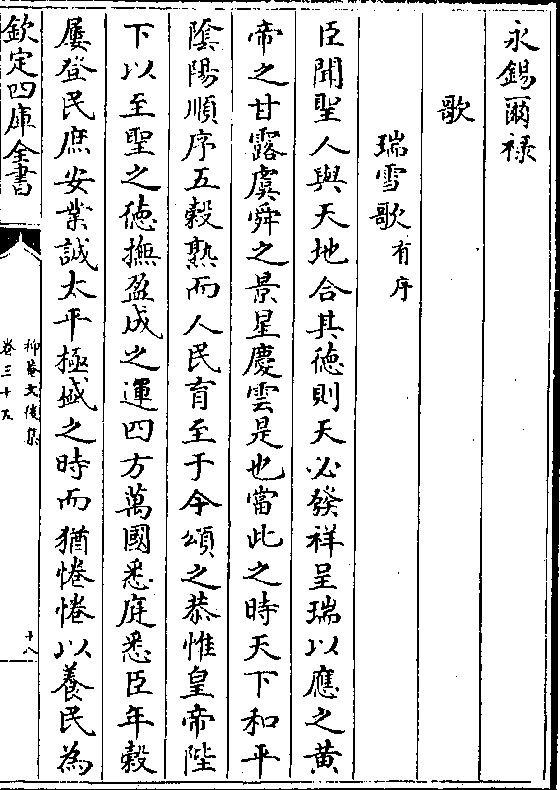 永錫爾禄
歌
瑞雪歌有序
臣聞聖人與天地合其徳則天必發祥呈瑞以應之黄
帝之甘露虞舜之景星慶雲是也當此之時天下和平
陰陽順序五穀熟而人民育至于今頌之恭惟皇帝陛
下以至聖之徳撫盈成之運四方萬國悉庭悉臣年穀
屢登民庶安業誠太平極盛之時而猶惓惓以養民為
欽定四庫全書
抑菴文後集
卷三十五
十八